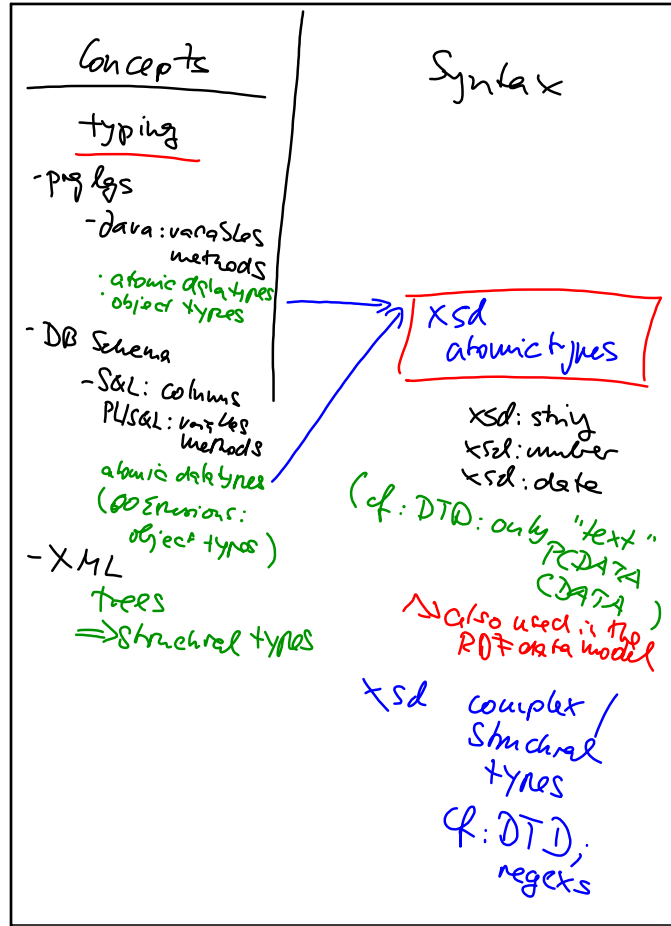 Concepts
typing
- prg lgs
- Java: variables
methods
· atomic datatypes
· object types
- DB Schema
- SQL: columns
PL/SQL: variables
methods
atomic datatypes
(OO Extensions:
object types)
- XML
trees
⇒ structural types
Syntax
xsd
atomic types
xsd: string
xsd: number
xsd: date
(cf: DTD: only "text"
PCDATA
CDATA )
also used in the
RDF data model
xsd complex /
structural
types
cf: DTD;
regexs